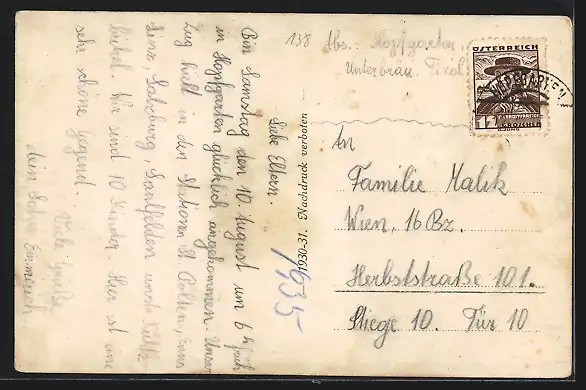 Liebe Eltern.
Bin Samstag den 10 August um 6h früh
in Hopfgarten glücklich angekommen. Unser
Zug hielt in den Stationen St. Pölten, Enns
Linz, Salzburg, Saalfelden und
Wir sind 10 Kinder. Hier ist eine
sehr schöne Gegend.
Viele Grüße
dein Sohn Emmerich
1930-31. Nachdruck verboten
1935
138 Abs.: Hopfgarten
Unterbräu. Tirol
ÖSTERREICH
HOPFGARTEN
12 GROSCHEN
An
Familie Malik
Wien, 16 Bz.
Herbststraße 101.
Stiege 10. Tür 10